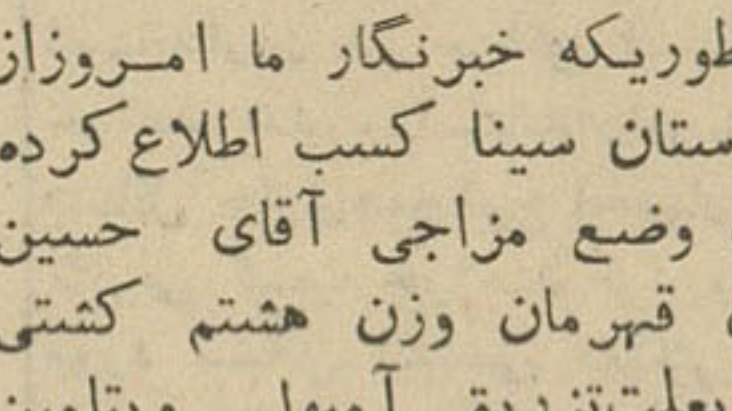 طوریکه خبرنگار ما امروز از
ستان سینا کسب اطلاع کرده
وضع مزاجی آقای حسین
قهرمان وزن هشتم کشتی
بعلت تزریق آمپول